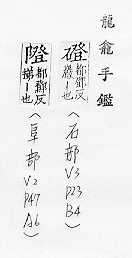 龍龕手鑑
磴 都鄧反磴|也
(石部 V3 P23 B4)
隥 都鄧反梯|也
(阜部 V2 P47 A6)